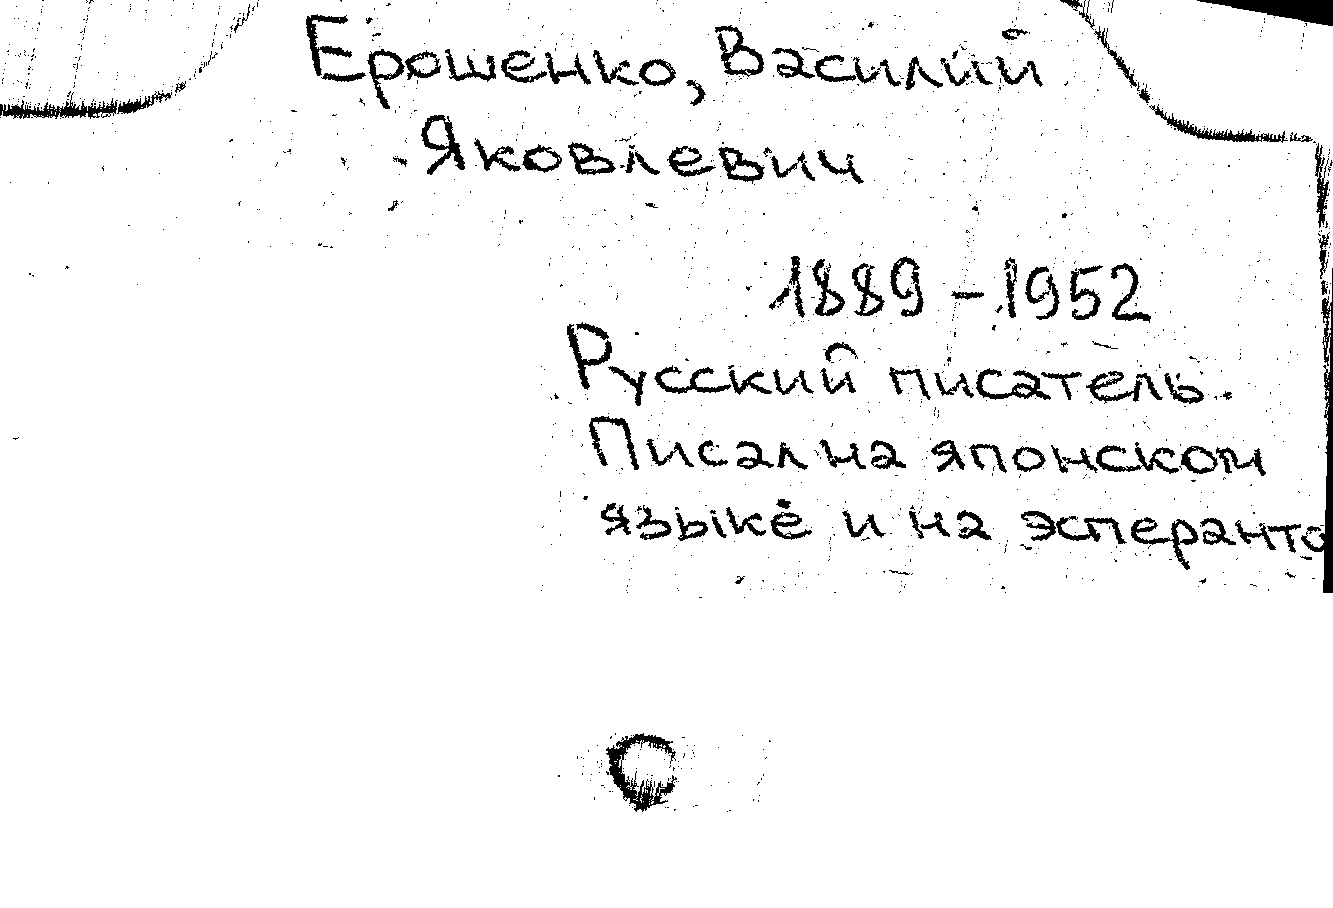 Ерошенко, Василий
Яковлевич
1889 - 1952
Русский писатель.
Писал на японском
языке и на эсперанто